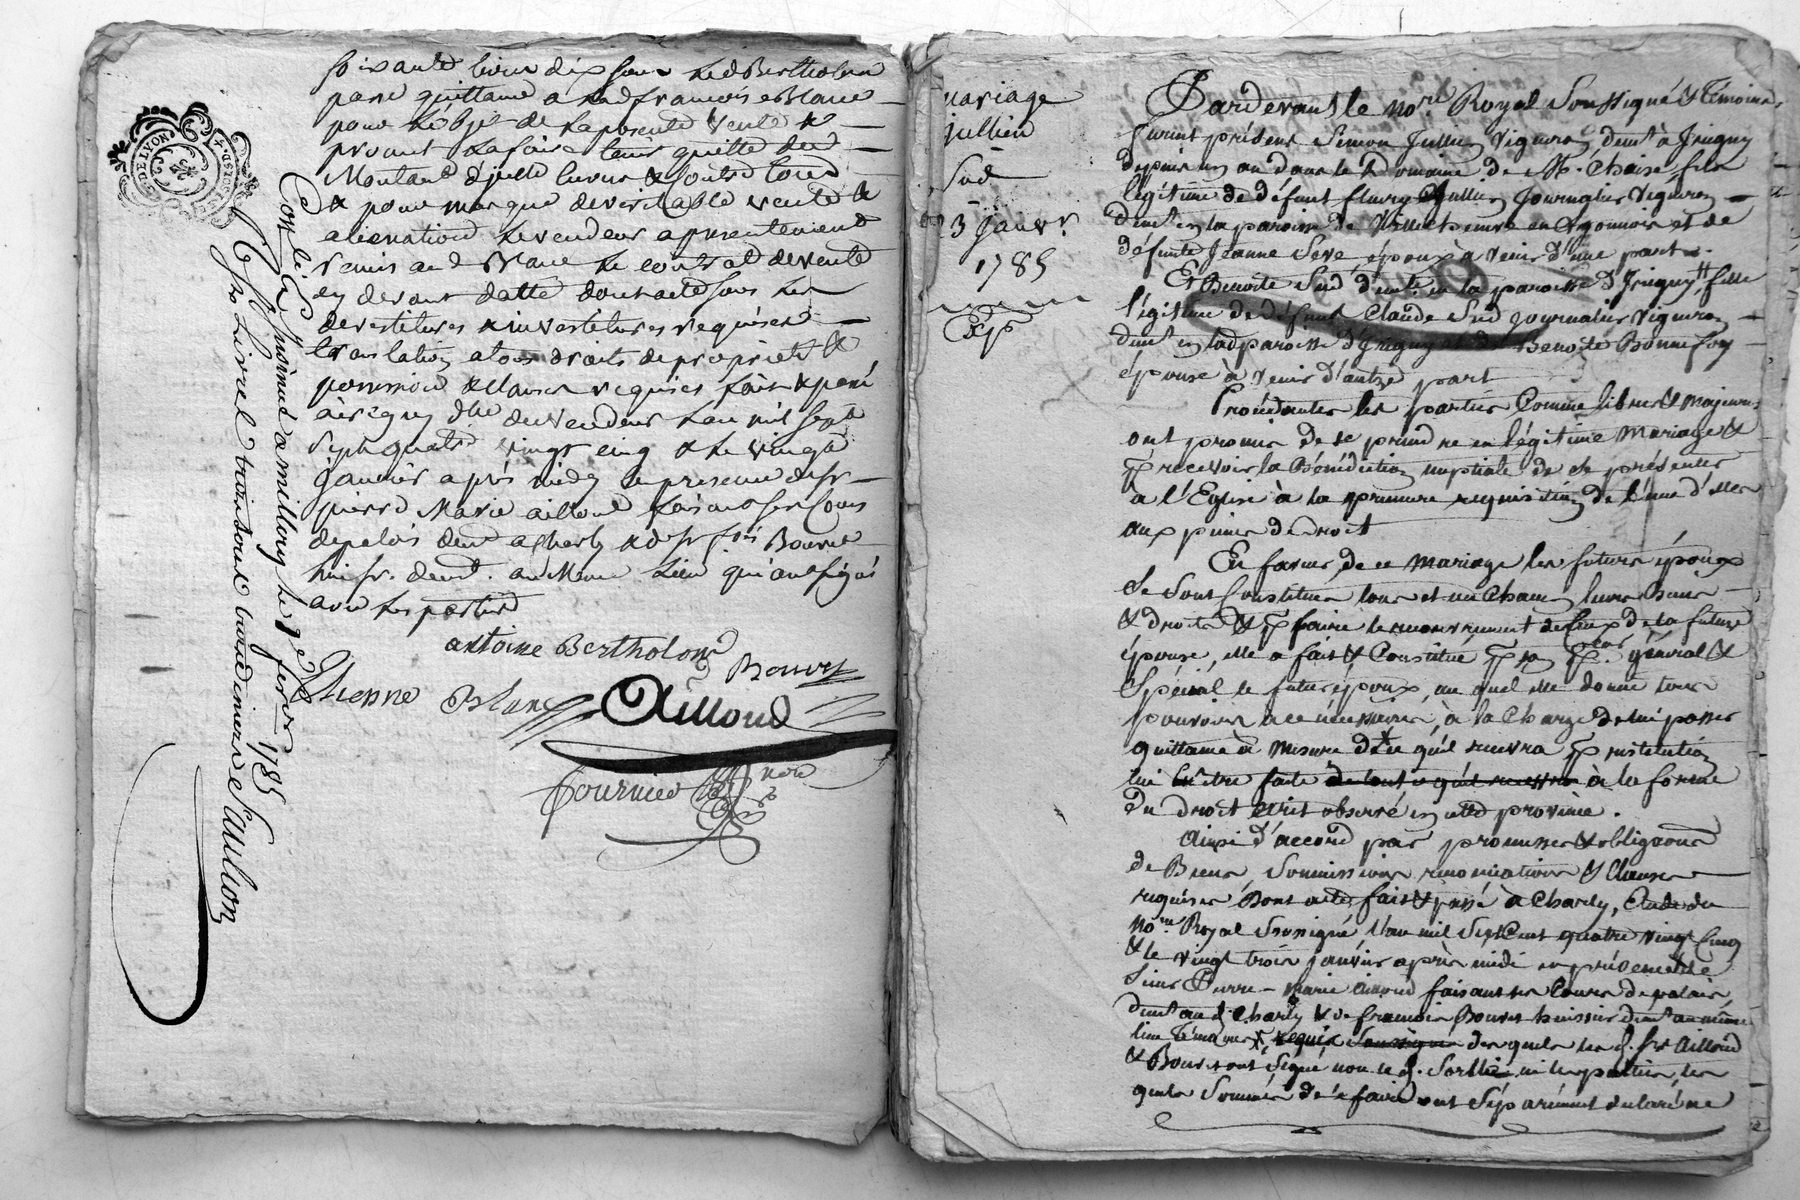 soixante livres dix sous led Bertholon
passe quittance aud françois Blanc
pour
promet faire tenir quitte dud
Montant d'icelle envers & contre tous
& pour marque de veritable vente &
alienation le vendeur a presentement
remis aud Blanc le contrat de vente
cy devant datté dont acte sous les
devestitures & investitures requises
translation de tous droits de proprieté &
possession & clauses requises fait & passé
à irigny du vendeur l'an mil sept
quatre vingt cinq & le vingt
janvier après midy en presence de sr
pierre Marie ailloud faisant ses Cours
de palais demt a Charly & de sr fois Bouvet
huisr. demt. au Meme Lieu qui ont signé
avec les parties
antoine Bertholon
Bouvet
Etienne Blanc
Ailloud
Fournier
DE LYON
Conlé & insinué a millery le 7e fevr 1785
livres trois sous deniers Saulion
mariage
jullien
Sud
23 janvr.
1785
Exp
Pardevant le nore. Royal Soussigné & Témoins
furent présents Simon Jullien Vigneron demt à Irigny
depuis un an dans le Domaine de Mr. Chaise fils
légitime de défunt fleury Jullien Journalier Vigneron
demt en la paroisse de en Lyonnois et de
défunte Jeanne Seve, époux à venir d'une part.
Et Benoite Sud demte en la paroisse d'Irigny fille
légitime de défunt Claude Sud journalier Vigneron
demt en lad paroisse d'Irigny et de Benoite Bonnefoy
épouse à venir d'autre part
Procédantes les parties Comme libres & majeures
ont promis de se prendre en légitime Mariage &
recevoir la Bénédiction nuptiale de se présenter
à l'Eglise à la première requisition de l'une d'elles
aux peines de droit
En faveur de ce mariage les futurs époux
se sont Constitués tous et un Chacun leurs Biens
& droits & p faire le recouvrement de ceux de la future
épouse, elle a fait & Constitué p son pcur. général &
Spécial le futur époux, au quel elle donne tous
pouvoirs à ce nécessaires, à la Charge de lui passer
quittance à mesure de ce qu'il recevra p restitution
lui en être faite de tout ce qu'il recevra à la forme
du droit écrit observé en cette province.
Ainsi d'accord par promesses & obligations
de Biens, Soumissions renonciations & Clauses
requises Dont acte fait & passé à Charly, Etude du
Nore Royal Soussigné l'an mil Sept Cent quatre vingt Cinq
& le vingt trois janvier après midi en présence de
Sieur Pierre-marie ailloud faisant ses Cours de palais,
demt aud. Charly & de françois Bouvet huissier demt au même
lieu Témoins requis Soussignés des quels les d. srs Ailloud
& Bouvet ont Signé non le d. ni les parties, les
quels Sommés de ce faire ont Séparément déclaré ne